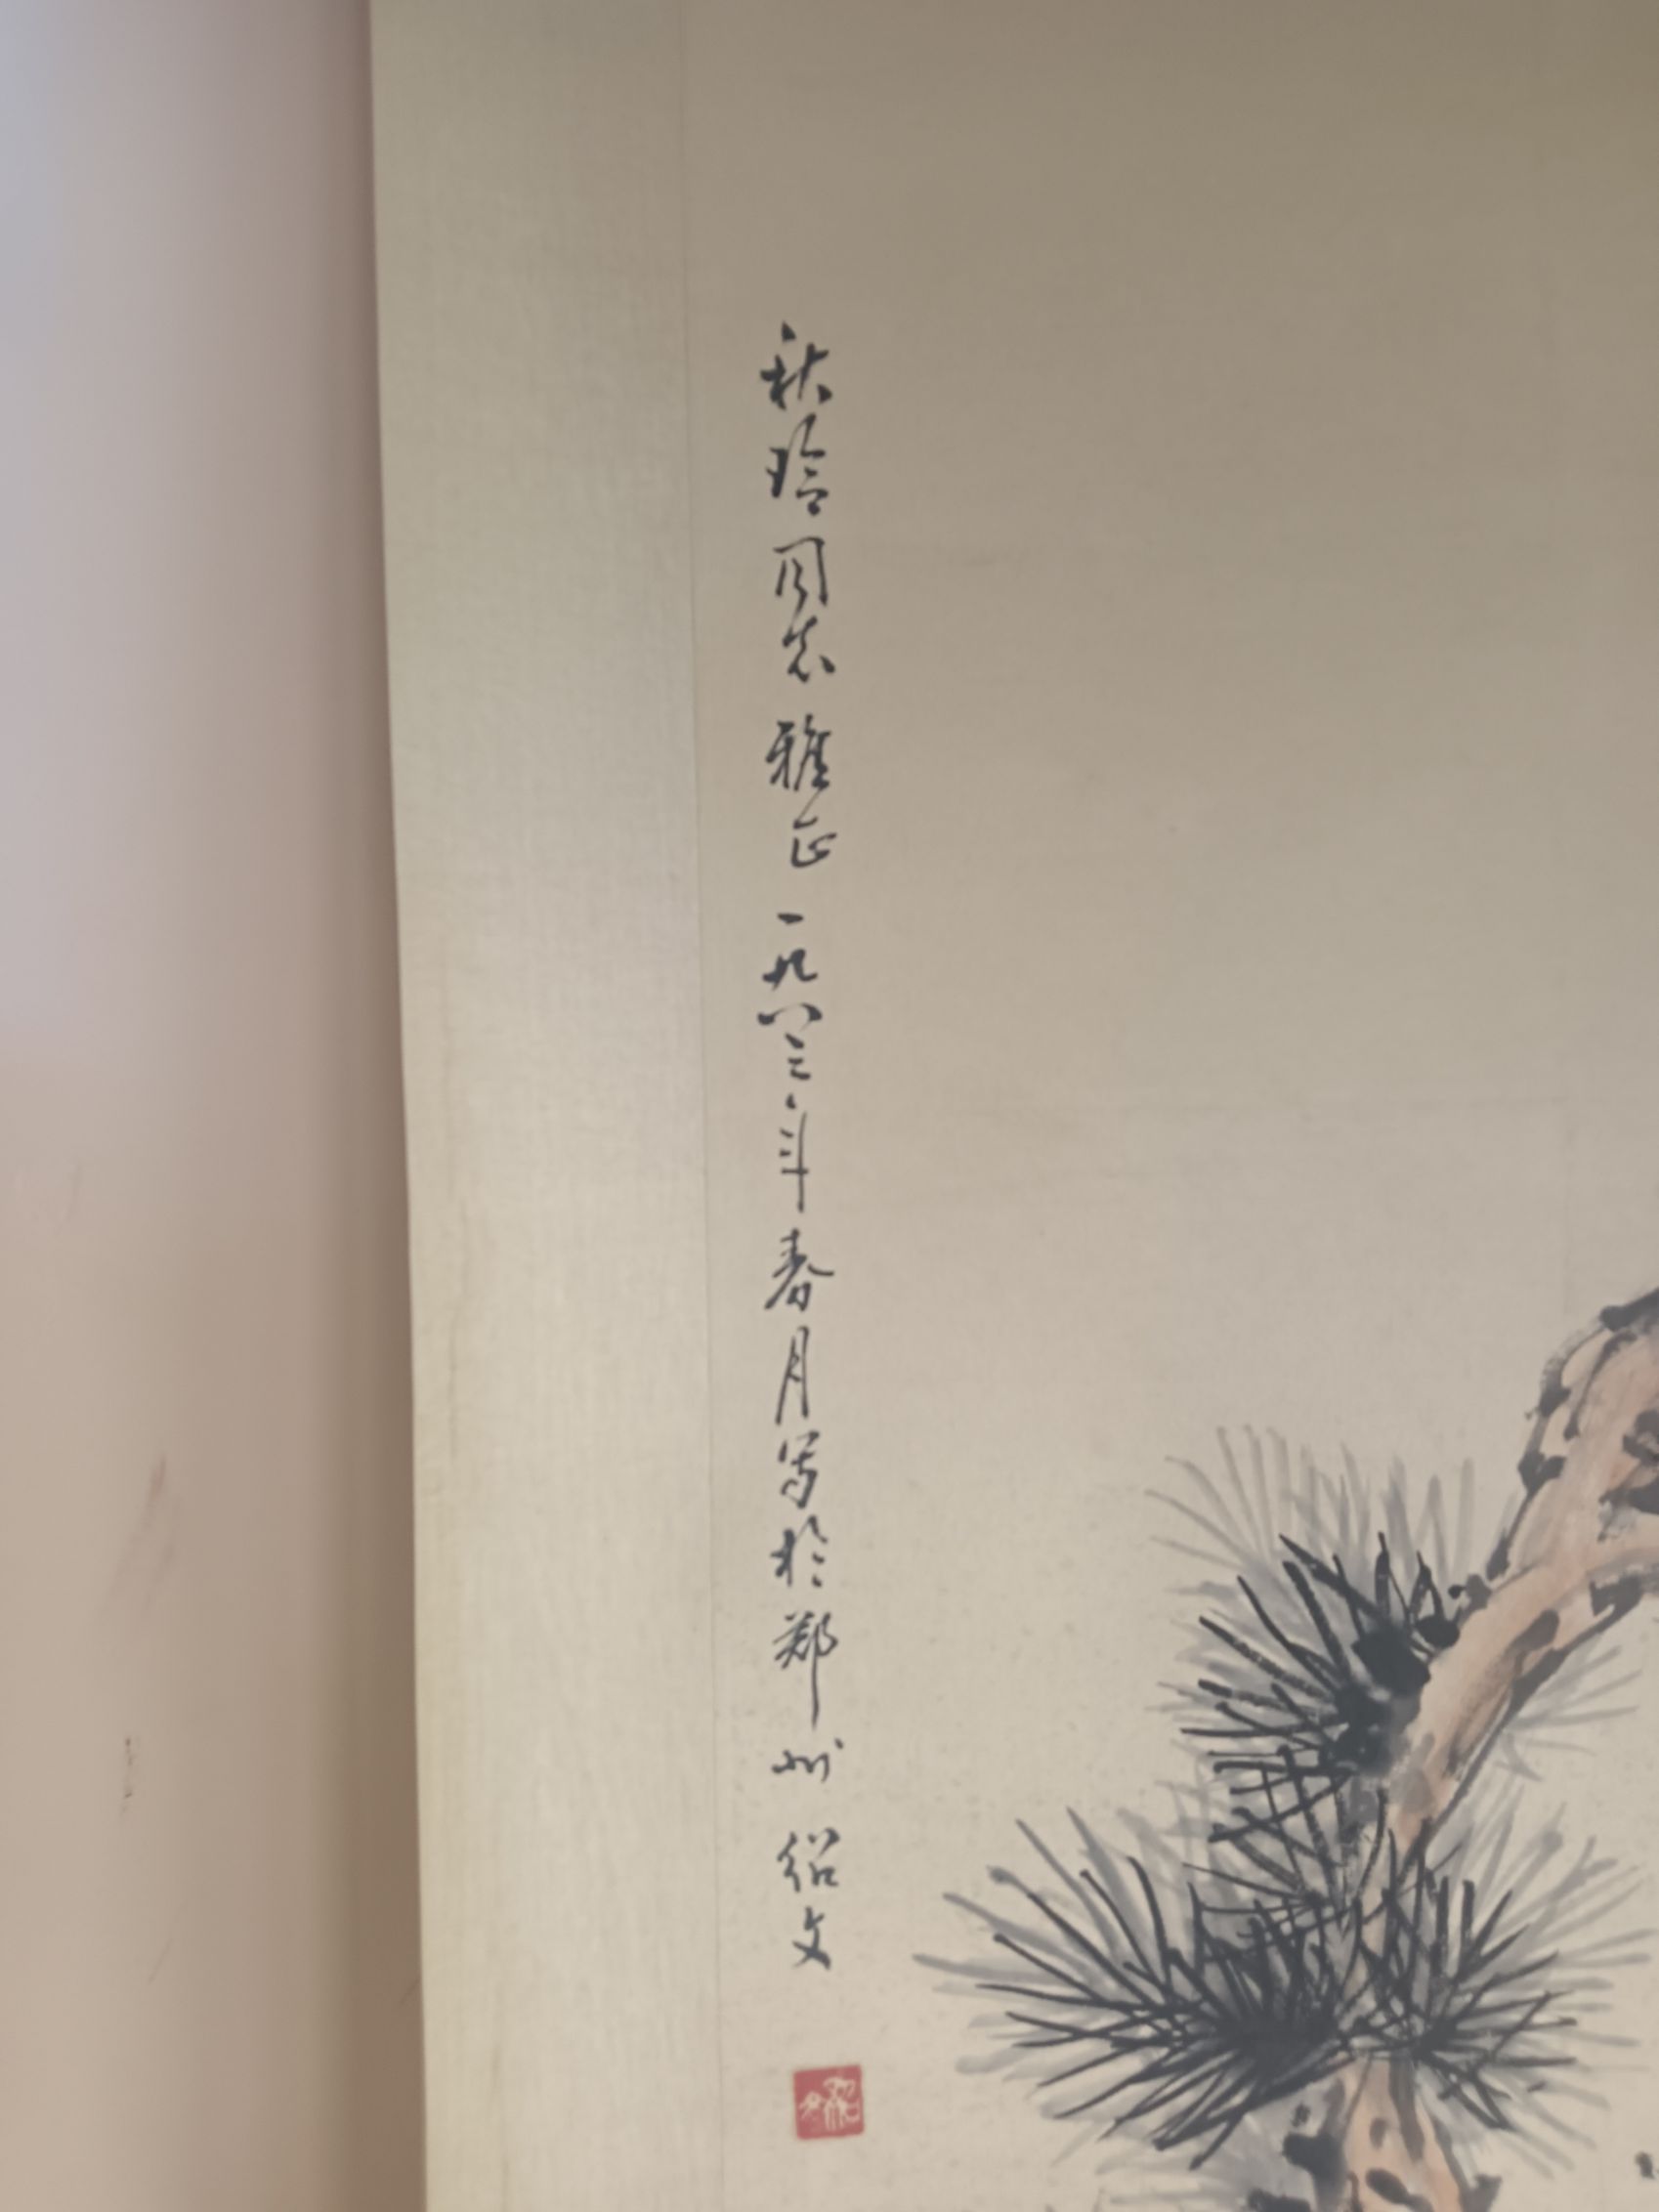 秋玲同志雅正一九八三年春月写於郑州绍文